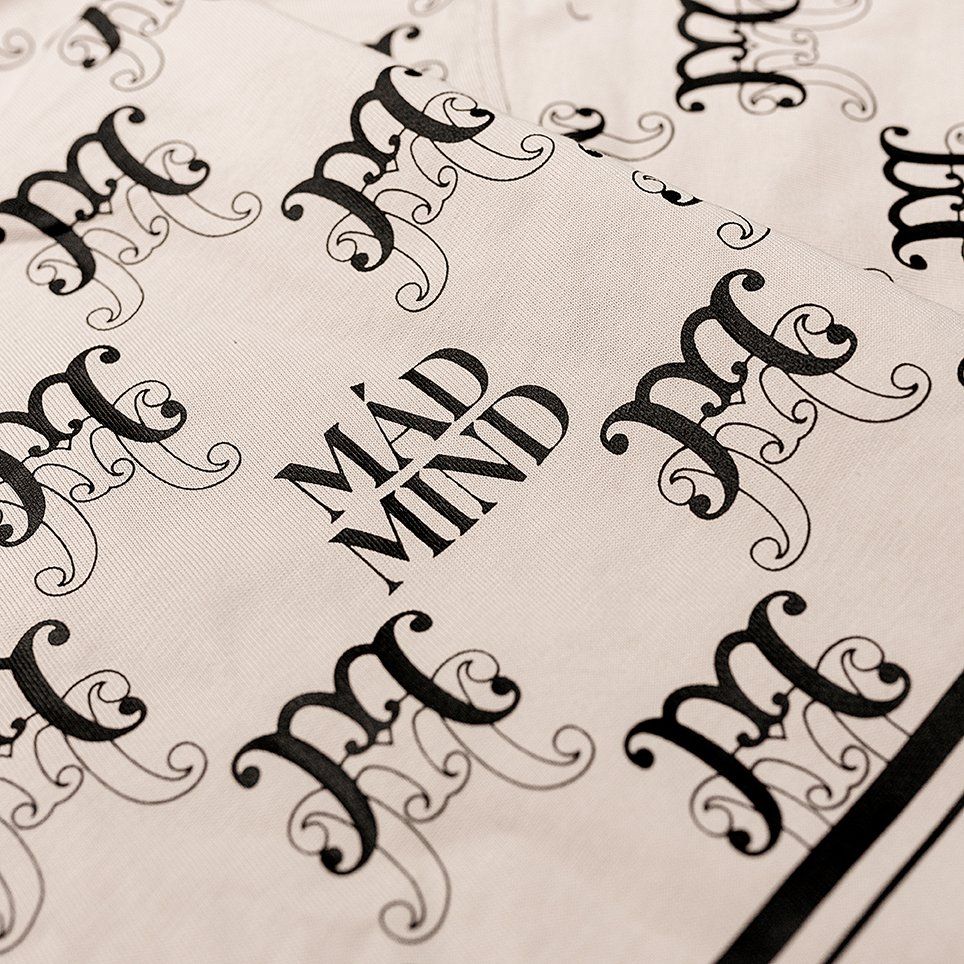 MAD
MIND